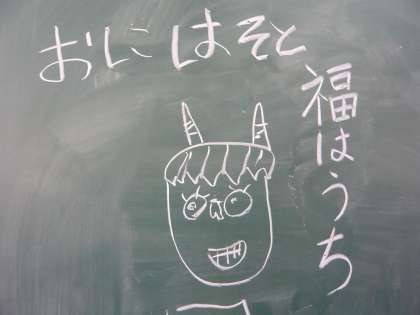 おにはそと
福はうち